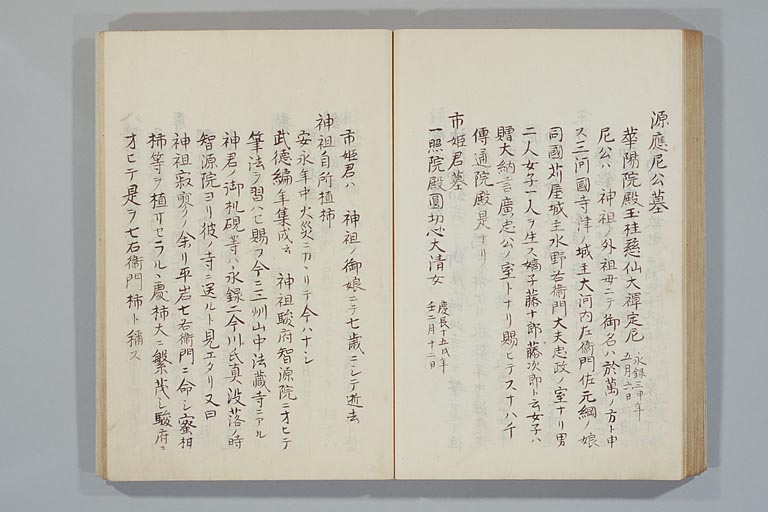 源應尼公墓
華陽院殿玉桂慈仙大禪定尼 永録三申年 五月六日
尼公ハ 神祖ノ外祖母ニテ御名ハ於萬ノ方ト申
ス三河國寺津ノ城主大河内左衛門佐元綱ノ娘
同國苅屋城主水野右衛門大夫忠政ノ室ナリ男
二人女子一人ヲ生ス嫡子藤十郎藤次郎ト云女子ハ
贈大納言廣忠公ノ室トナリ賜ヒテスナハチ
傳通院殿是ナリ
市姫君墓
一照院殿圓功心大清女 慶長十五戌年 壬二月十二日
市姫君ハ 神祖ノ御娘ニテ七歳ニシテ逝去
神祖自所植柿
安永年中火災ニカヽリテ今ハナシ
武徳編年集成云 神祖駿府智源院ニオヒテ
筆法ヲ習ハセ賜フ今ニ三州山中法藏寺ニアル
神君ノ御机硯等ハ永録二今川氏真没落ノ時
智源院ヨリ彼ノ寺ニ送ルト見エタリ又曰
神祖寂寥ノ余リ平岩七右衛門ニ命シ蜜柑
柿等ヲ植サセラルヽ處柿大ニ繁茂シ駿府ニ
オヒテ是ヲ七右衛門柿ト稱ス